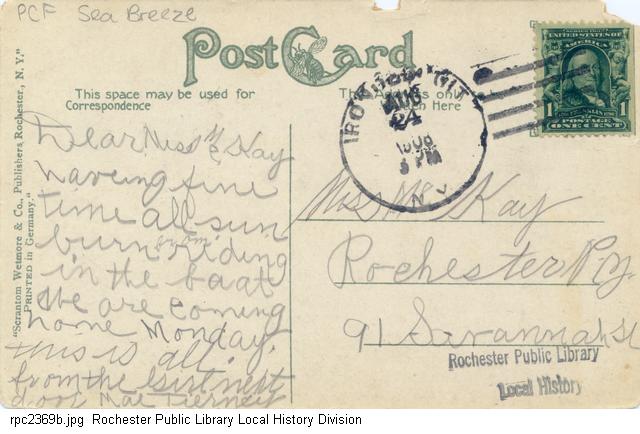 PCF Sea Breeze
Post Card
This space may be used for
Correspondence
The Address only
Here
IRO
AUG
24
3 PM
N.Y.
1 UNITED STATES OF AMERICA 1
POSTAGE
ONE CENT
"Scrantom Wetmore & Co., Publishers Rochester, N. Y."
PRINTED in Germany."
Dear Miss McKay
haveing fine
time all sun
burn from riding
in the boat
We are coming
home Monday.
this is all.
from the girl next
door Mae Tierney
Miss McKay
Rochester N.Y.
91 Savannah St
Rochester Public Library
Local History
rpc2369b.jpg Rochester Public Library Local History Division